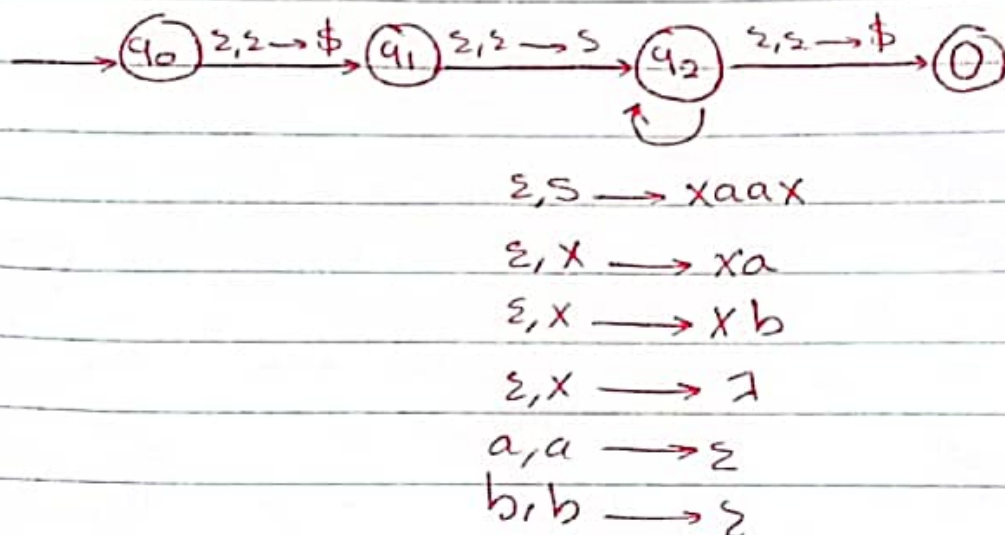 q0 ε,ε → $ q1 ε,ε → S q2 ε,ε → $
ε,S → XaaX
ε,X → Xa
ε,X → Xb
ε,X → λ
a,a → ε
b,b → ε